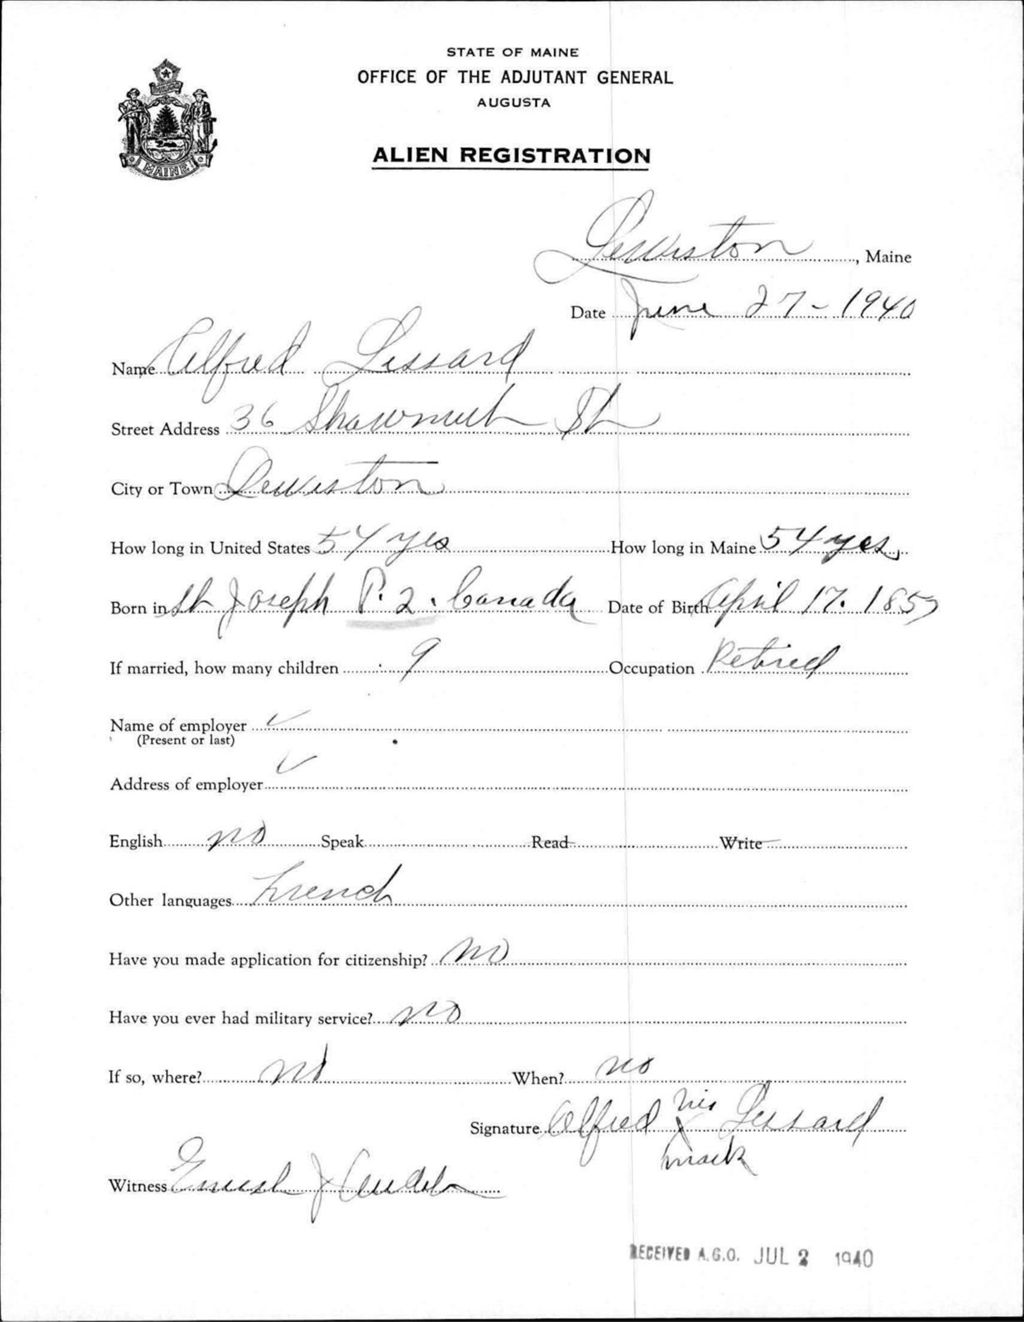 STATE OF MAINE
OFFICE OF THE ADJUTANT GENERAL
AUGUSTA
ALIEN REGISTRATION
MAINE
Lewiston, Maine
Date June 27-1940
Name Alfred Lessard
Street Address 36 Shawmut St
City or Town Lewiston
How long in United States 54 yes How long in Maine 54 yes
Born in St Joseph P.2. Canada Date of Birth April 17. 1857
If married, how many children 9 Occupation Retired
Name of employer ✓
(Present or last)
Address of employer ✓
English no Speak Read Write
Other languages French
Have you made application for citizenship? No
Have you ever had military service? no
If so, where? no When? no
Signature Alfred his X mark Lessard
Witness Ernest J
RECEIVED A.G.O. JUL 2 1940